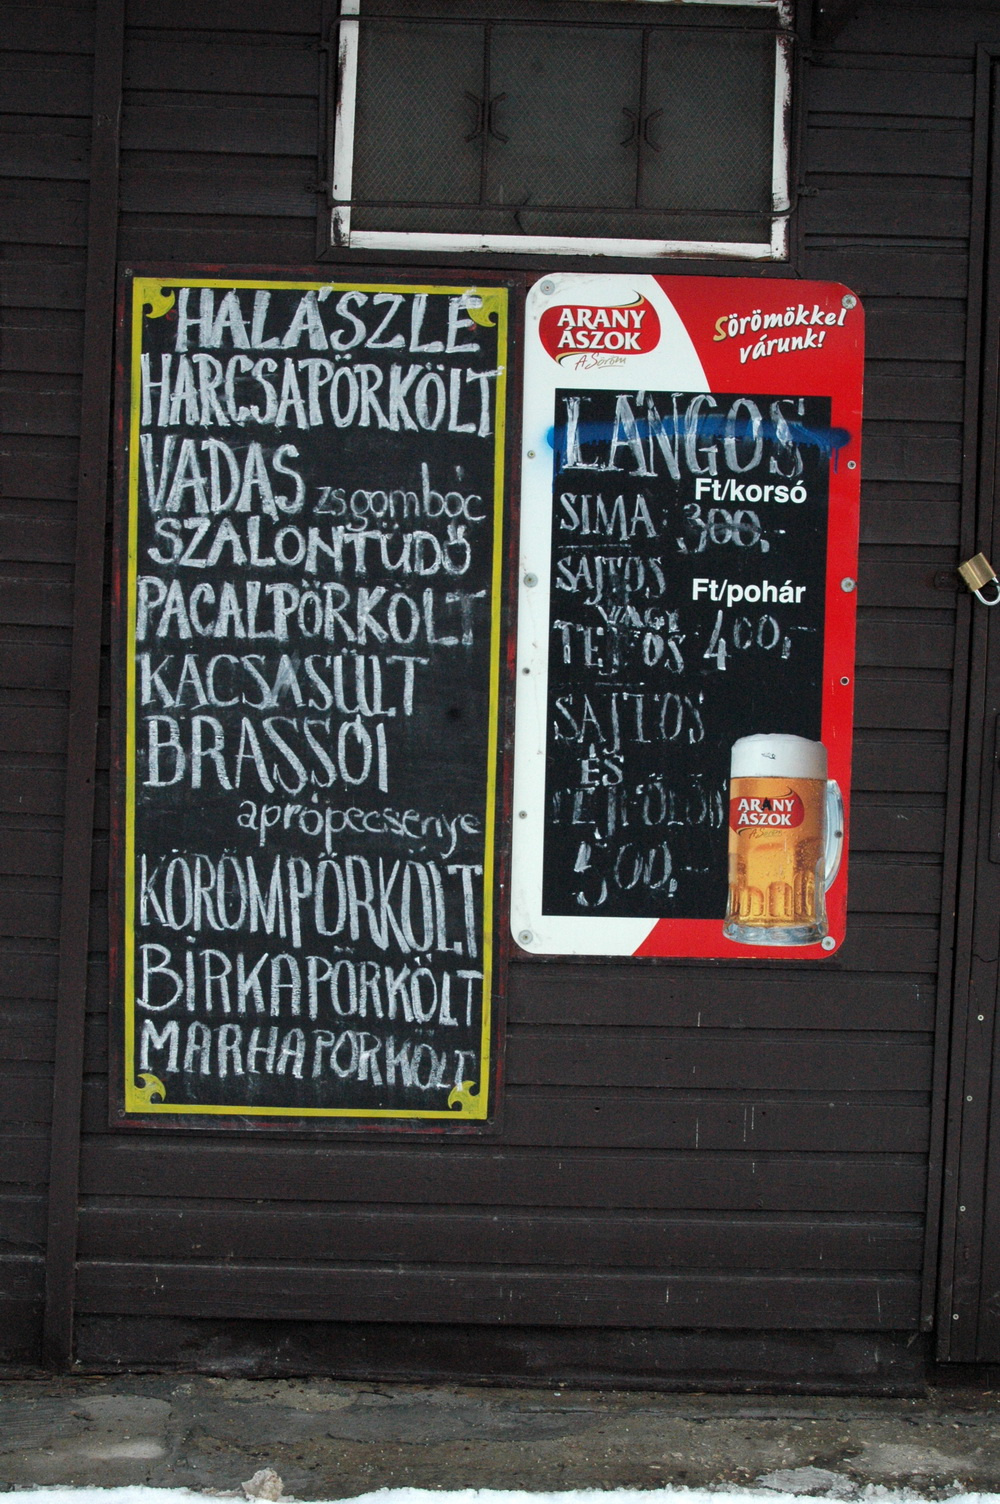 HALÁSZLÉ
HARCSAPÖRKÖLT
VADAS zsgombóc
SZALONTÜDŐ
PACALPÖRKÖLT
KACSASÜLT
BRASSÓI
aprópecsenye
KÖRÖMPÖRKÖLT
BIRKAPÖRKÖLT
MARHAPÖRKÖLT
ARANY
ÁSZOK
A Söröm
Sörömökkel
várunk!
LÁNGOS
Ft/korsó
SIMA 300,-
SAJTOS
Ft/pohár
VAGY
TEJFÖS 400,-
SAJTOS
ÉS
TEJFÖLÖS
500,-
ARANY
ÁSZOK